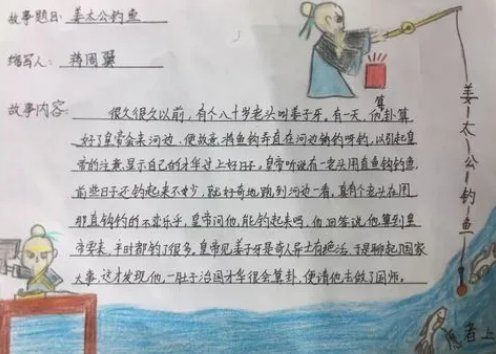 故事题目: 姜太公钓鱼
缩写人: 蒋周翼
故事内容: 很久很久以前,有个八十岁老头叫姜子牙,有一天,他卦算
算
好了皇帝会来河边,便故意将鱼钩弄直在河边钩钓呀钓,以引起皇
帝的注意,显示自己的才华过上好日子,皇帝听说有一老头用直鱼钩钓鱼,
前些日子还钓起来不少,就好奇地跑到河边一看,真有个老头在用
那直钩钓的不亦乐乎,皇帝问他,能钓起来吗,他回答说,他算到皇
帝要来,平时都钓了很多。皇帝见姜子牙是奇人异士有绝活,于是聊起了国家
大事,这才发现他,一肚子治国才华很会算卦,便请他去做了国师。
姜太公钓鱼
愿者上